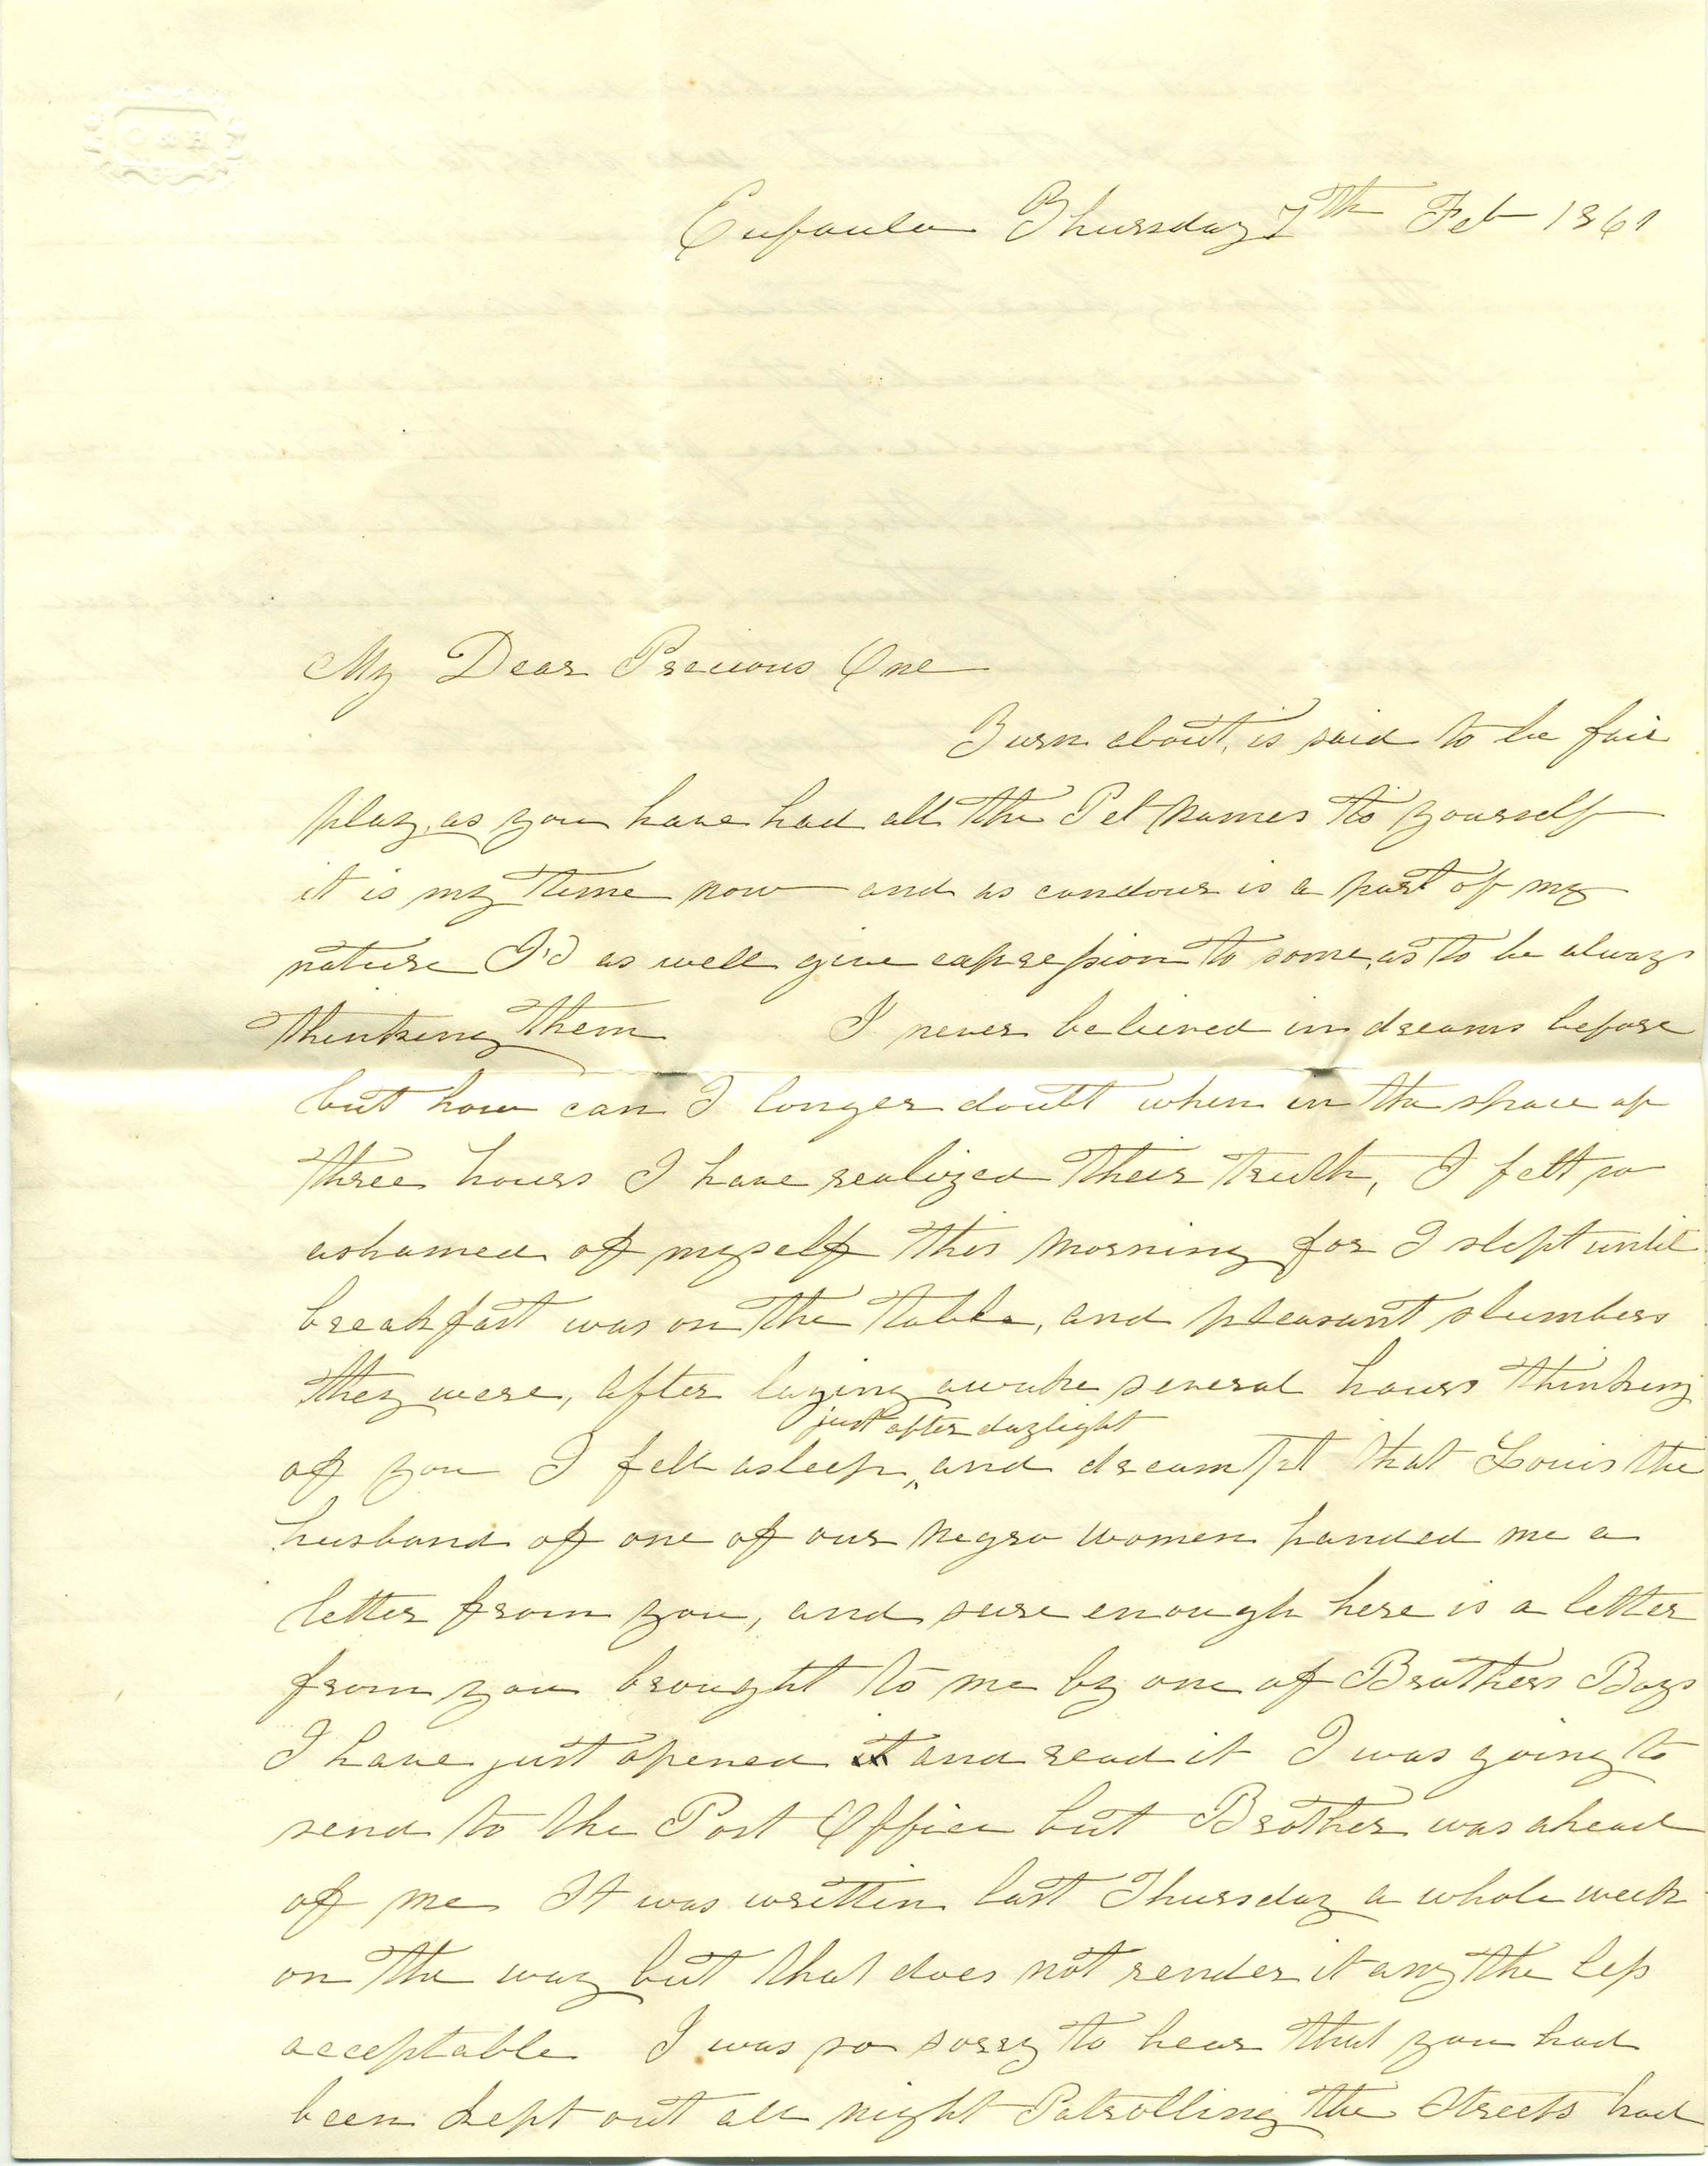 Eufaula Thursday 7th Feb 1861
My Dear Precious One
Turn about, is said to be fair
play, as you have had all the Pet names to yourself
it is my time now and as candour is a part of my
nature I'd as well give expression to some, as to be always
thinking them I never believed in dreams before
but how can I longer doubt when in the space of
three hours I have realized their truth, I felt so
ashamed of myself this morning for I slept until
breakfast was on the table, and pleasant slumbers
they were, after laying awake several hours thinking
just after daylight
of you I fell asleep, and dreamt that Louis the
husband of one of our negro women handed me a
letter from you, and sure enough here is a letter
from you brought to me by one of Brothers Boys
I have just opened it and read it I was going to
send to the Post Office but Brother was ahead
of me It was written last Thursday a whole week
on the way but that does not render it any the less
acceptable I was so sorry to hear that you had
been kept out all night Patrolling the Streets had